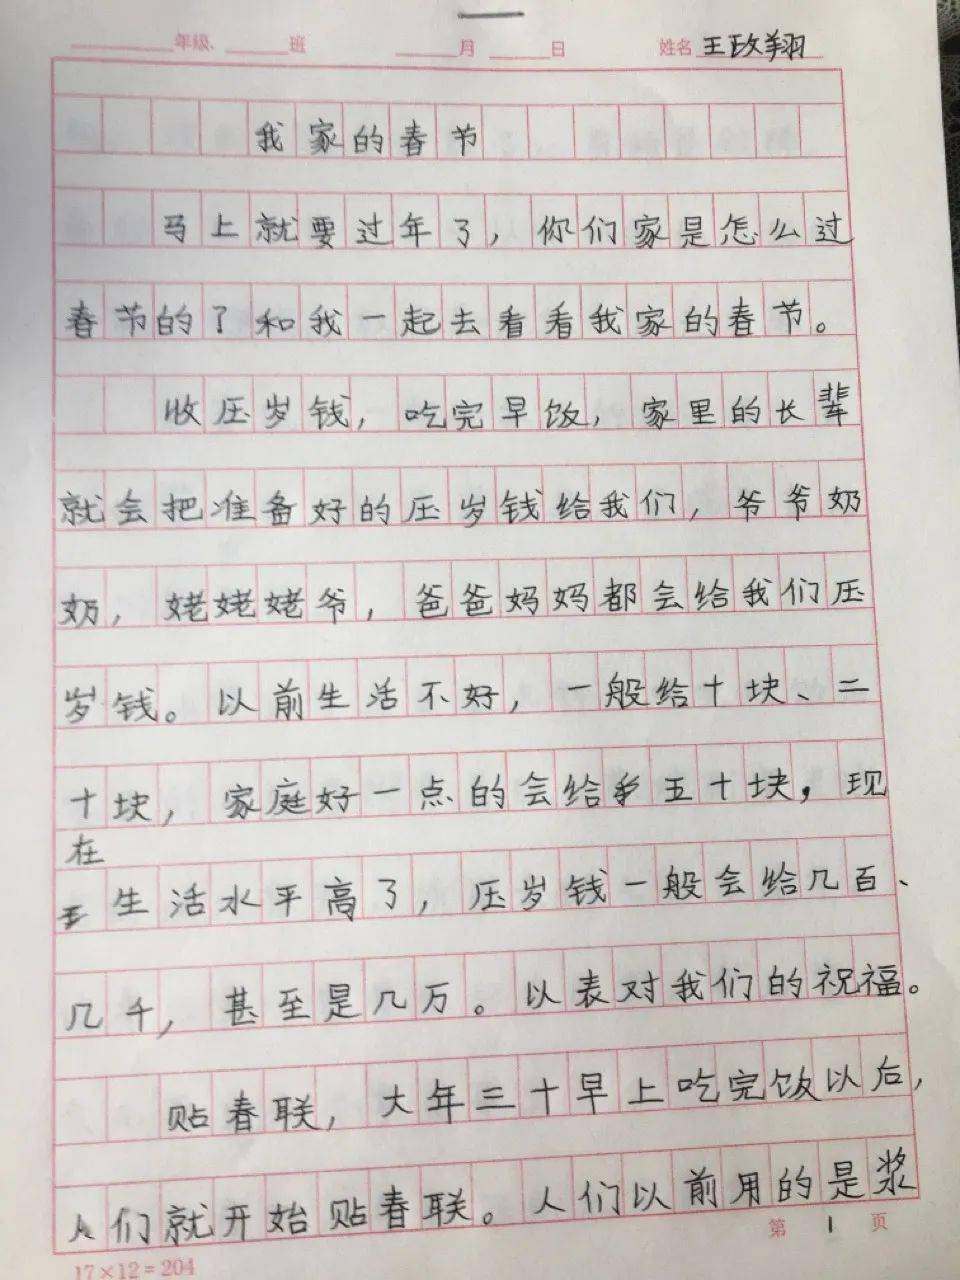 年级、 班 月 日 姓名 王政翔
我家的春节
马上就要过年了，你们家是怎么过
春节的了和我一起去看看我家的春节。
收压岁钱，吃完早饭，家里的长辈
就会把准备好的压岁钱给我们，爷爷奶
奶，姥姥姥爷，爸爸妈妈都会给我们压
岁钱。以前生活不好，一般给十块、二
十块，家庭好一点的会给五十块，现
在
生活水平高了，压岁钱一般会给几百、
几千，甚至是几万。以表对我们的祝福。
贴春联，大年三十早上吃完饭以后，
人们就开始贴春联。人们以前用的是浆
第 1 页
17×12=204